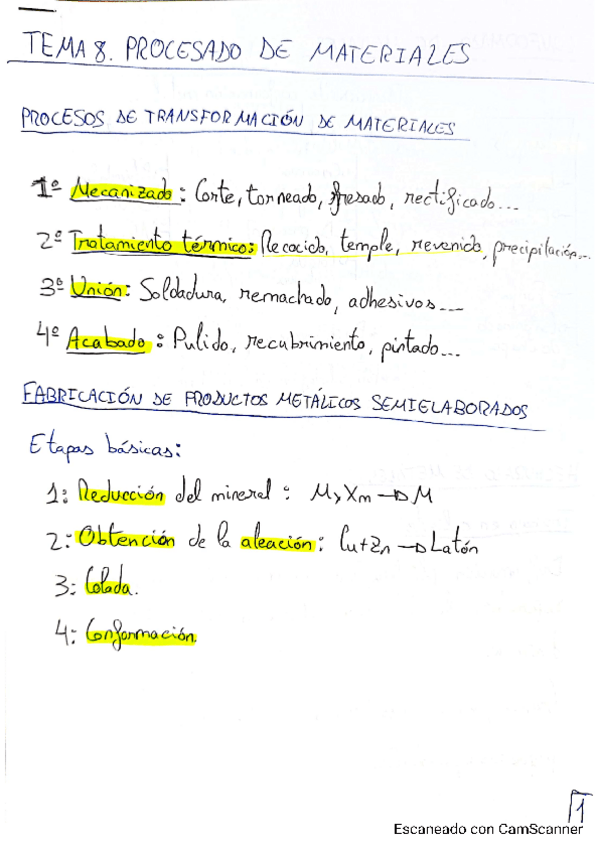 TEMA 8. PROCESADO DE MATERIALES
PROCESOS DE TRANSFORMACIÓN DE MATERIALES
1º Mecanizado: Corte, torneado, fresado, rectificado...
2º Tratamiento térmico: Recocido, temple, revenido, precipitación...
3º Unión: Soldadura, remachado, adhesivos...
4º Acabado: Pulido, recubrimiento, pintado...
FABRICACIÓN DE PRODUCTOS METÁLICOS SEMIELABORADOS
Etapas básicas:
1: Reducción del mineral: MyXm → M
2: Obtención de la aleación: Cu+Zn → Latón
3: Colada.
4: Conformación.
1
Escaneado con CamScanner